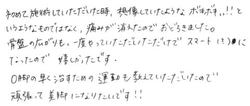 初めて施術していただいた時、想像していたような ボキボキ!!
というようなものではなく、痛みが消えたのでおどろきました。
骨盤の広がりも、一度やっていただいただけで スマートに(?)
なったので 嬉しかったです。
O脚の早く治すための運動も教えていただいたので
頑張って美脚になりたいです!!